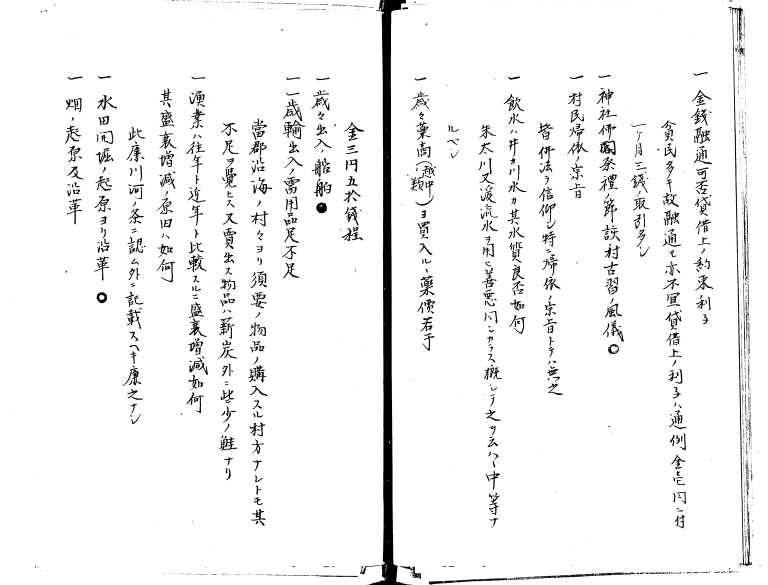 一 金銭融通可否貸借上ノ約束利子
貧民多キ故融通モ亦不宜貸借上ノ利子ハ通例金壱円ニ付
一ケ月三銭ノ取引多シ
一 神社佛閣祭禮ノ節該村古習ノ風儀○
一 村民帰依ノ宗旨
皆佛法ヲ信仰シ特ニ帰依ノ宗旨トテハ無之
一 飲水ハ井カ川水カ其水質良否如何
朱太川又渡流水ヲ用ヒ善悪同シカラス概シテ之ヲ云ハヽ中等ナ
ルベシ
一 歳々薬商(越中ノ類)ヨリ買入ルヽ薬價若干
金三円五拾銭程
一 歳々出入ノ船舶●
一 歳輸出入ノ需用品足不足
當郡沿海ノ村々ヨリ須要ノ物品ノ購入スル村方ナレトモ其
不足ヲ覺ヒス又賣出ス物品ハ薪炭外ニ些少ノ鮭ナリ
一 漁業ハ往年ト近年ト比較スルニ盛衰増減如何
其盛衰増減ノ原因ハ如何
此廉川河ノ条ニ認ム外ニ記載スヘキ廉之ナシ
一 水田開堀ノ起原ヨリ沿革○
一 畑ノ起原及沿革